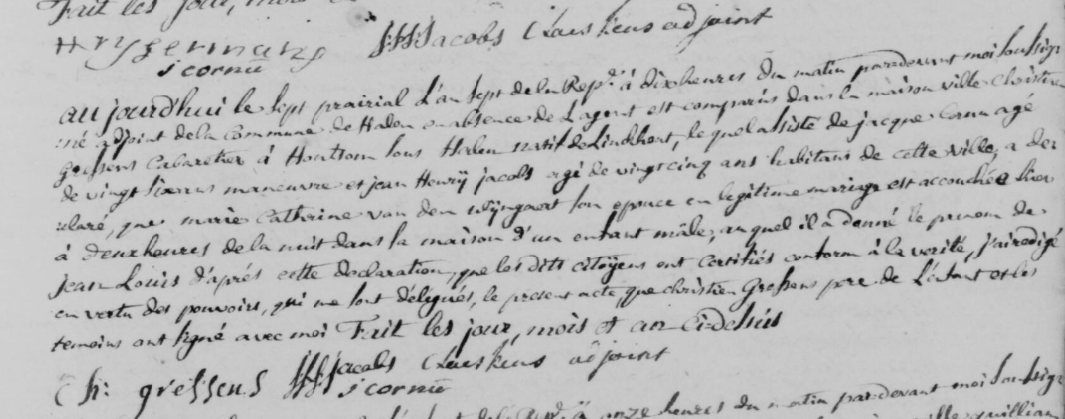 Fait les jour, mois
Hryssermans JHJacobs Claeskens adjoint
s cornü
aujourd'hui le sept prairial L'an sept de la Rep.e à dix heures du matin pardevant moi soussig
né adjoint de la Commune de Halen en absence de L'agent est comparûs dans la maison ville Christien
gressens Cabaretier à sous Halen natif de Linckhout, lequel assisté de jacque Cornu agé
de vingt six ans manœuvre et jean Henrÿ jacobs agé de vingt cinq ans habitans de cette ville, a de
claré, que marie Catherine van den wÿngaert son epouce en legitime mariage est accouchée hier
à deux heures de la nuit dans sa maison d'un enfant mâle, auquel il a donné le prenom de
jean Louis d'aprés cette declaration, que les dits citoÿens ont certifiés conform à la verité, j'ai redigé
en vertu des pouvoirs, qui me sont délegués, le present acte que christien Gressens pere de L'enfant et les
temoins ont signé avec moi Fait les jour, mois et an ci-dessus
Ch: gressens JHJacobs Claeskens adjoint
s cornü
onze heures du matin pardevant moi soussig